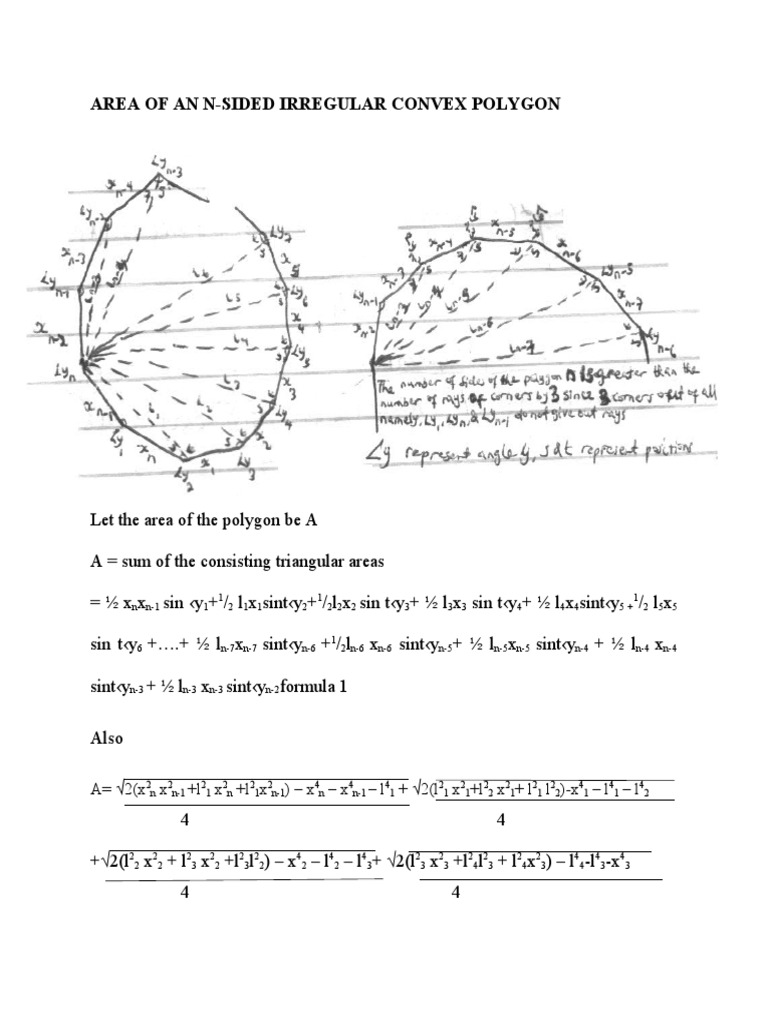 AREA OF AN N-SIDED IRREGULAR CONVEX POLYGON
∠yn-3
xn-4
xn-3
∠yn-1
xn-2
∠yn
xn-1
∠y1
xn
∠y2
x1
∠y3
x2
∠y4
x3
∠y5
x4
∠y6
x5
∠y7
l6
l5
l4
l3
l2
l1
xn-4
xn-5
xn-6
∠yn-5
xn-3
∠yn-1
xn-2
xn-7
∠yn-6
Ln-6
Ln-7
The number of sides of the polygon n is greater than the
number of rays of corners by 3 since 3 corners out of all
namely, ∠y1, ∠yn, & ∠yn-1 do not give out rays
∠y represent angle y, s & t represent positions
Let the area of the polygon be A
A = sum of the consisting triangular areas
= ½ xnxn-1 sin ‹y1+1/2 l1x1sint‹y2+1/2l2x2 sin t‹y3+ ½ l3x3 sin t‹y4+ ½ l4x4sint‹y5 +1/2 l5x5
sin t‹y6 +….+ ½ ln-7xn-7 sint‹yn-6 +1/2ln-6 xn-6 sint‹yn-5+ ½ ln-5xn-5 sint‹yn-4 + ½ ln-4 xn-4
sint‹yn-3 + ½ ln-3 xn-3 sint‹yn-2formula 1
Also
A= √2(x2n x2n-1 +l21 x2n +l21x2n-1) – x4n – x4n-1 – l41 + √2(l21 x21+l22 x21+ l21 l22)-x41 – l41 – l42
4 4
+√2(l22 x22 + l23 x22 +l23l22) – x42 – l42 – l43+ √2(l23 x23 +l24l23 + l24x23) – l44-l43-x43
4 4